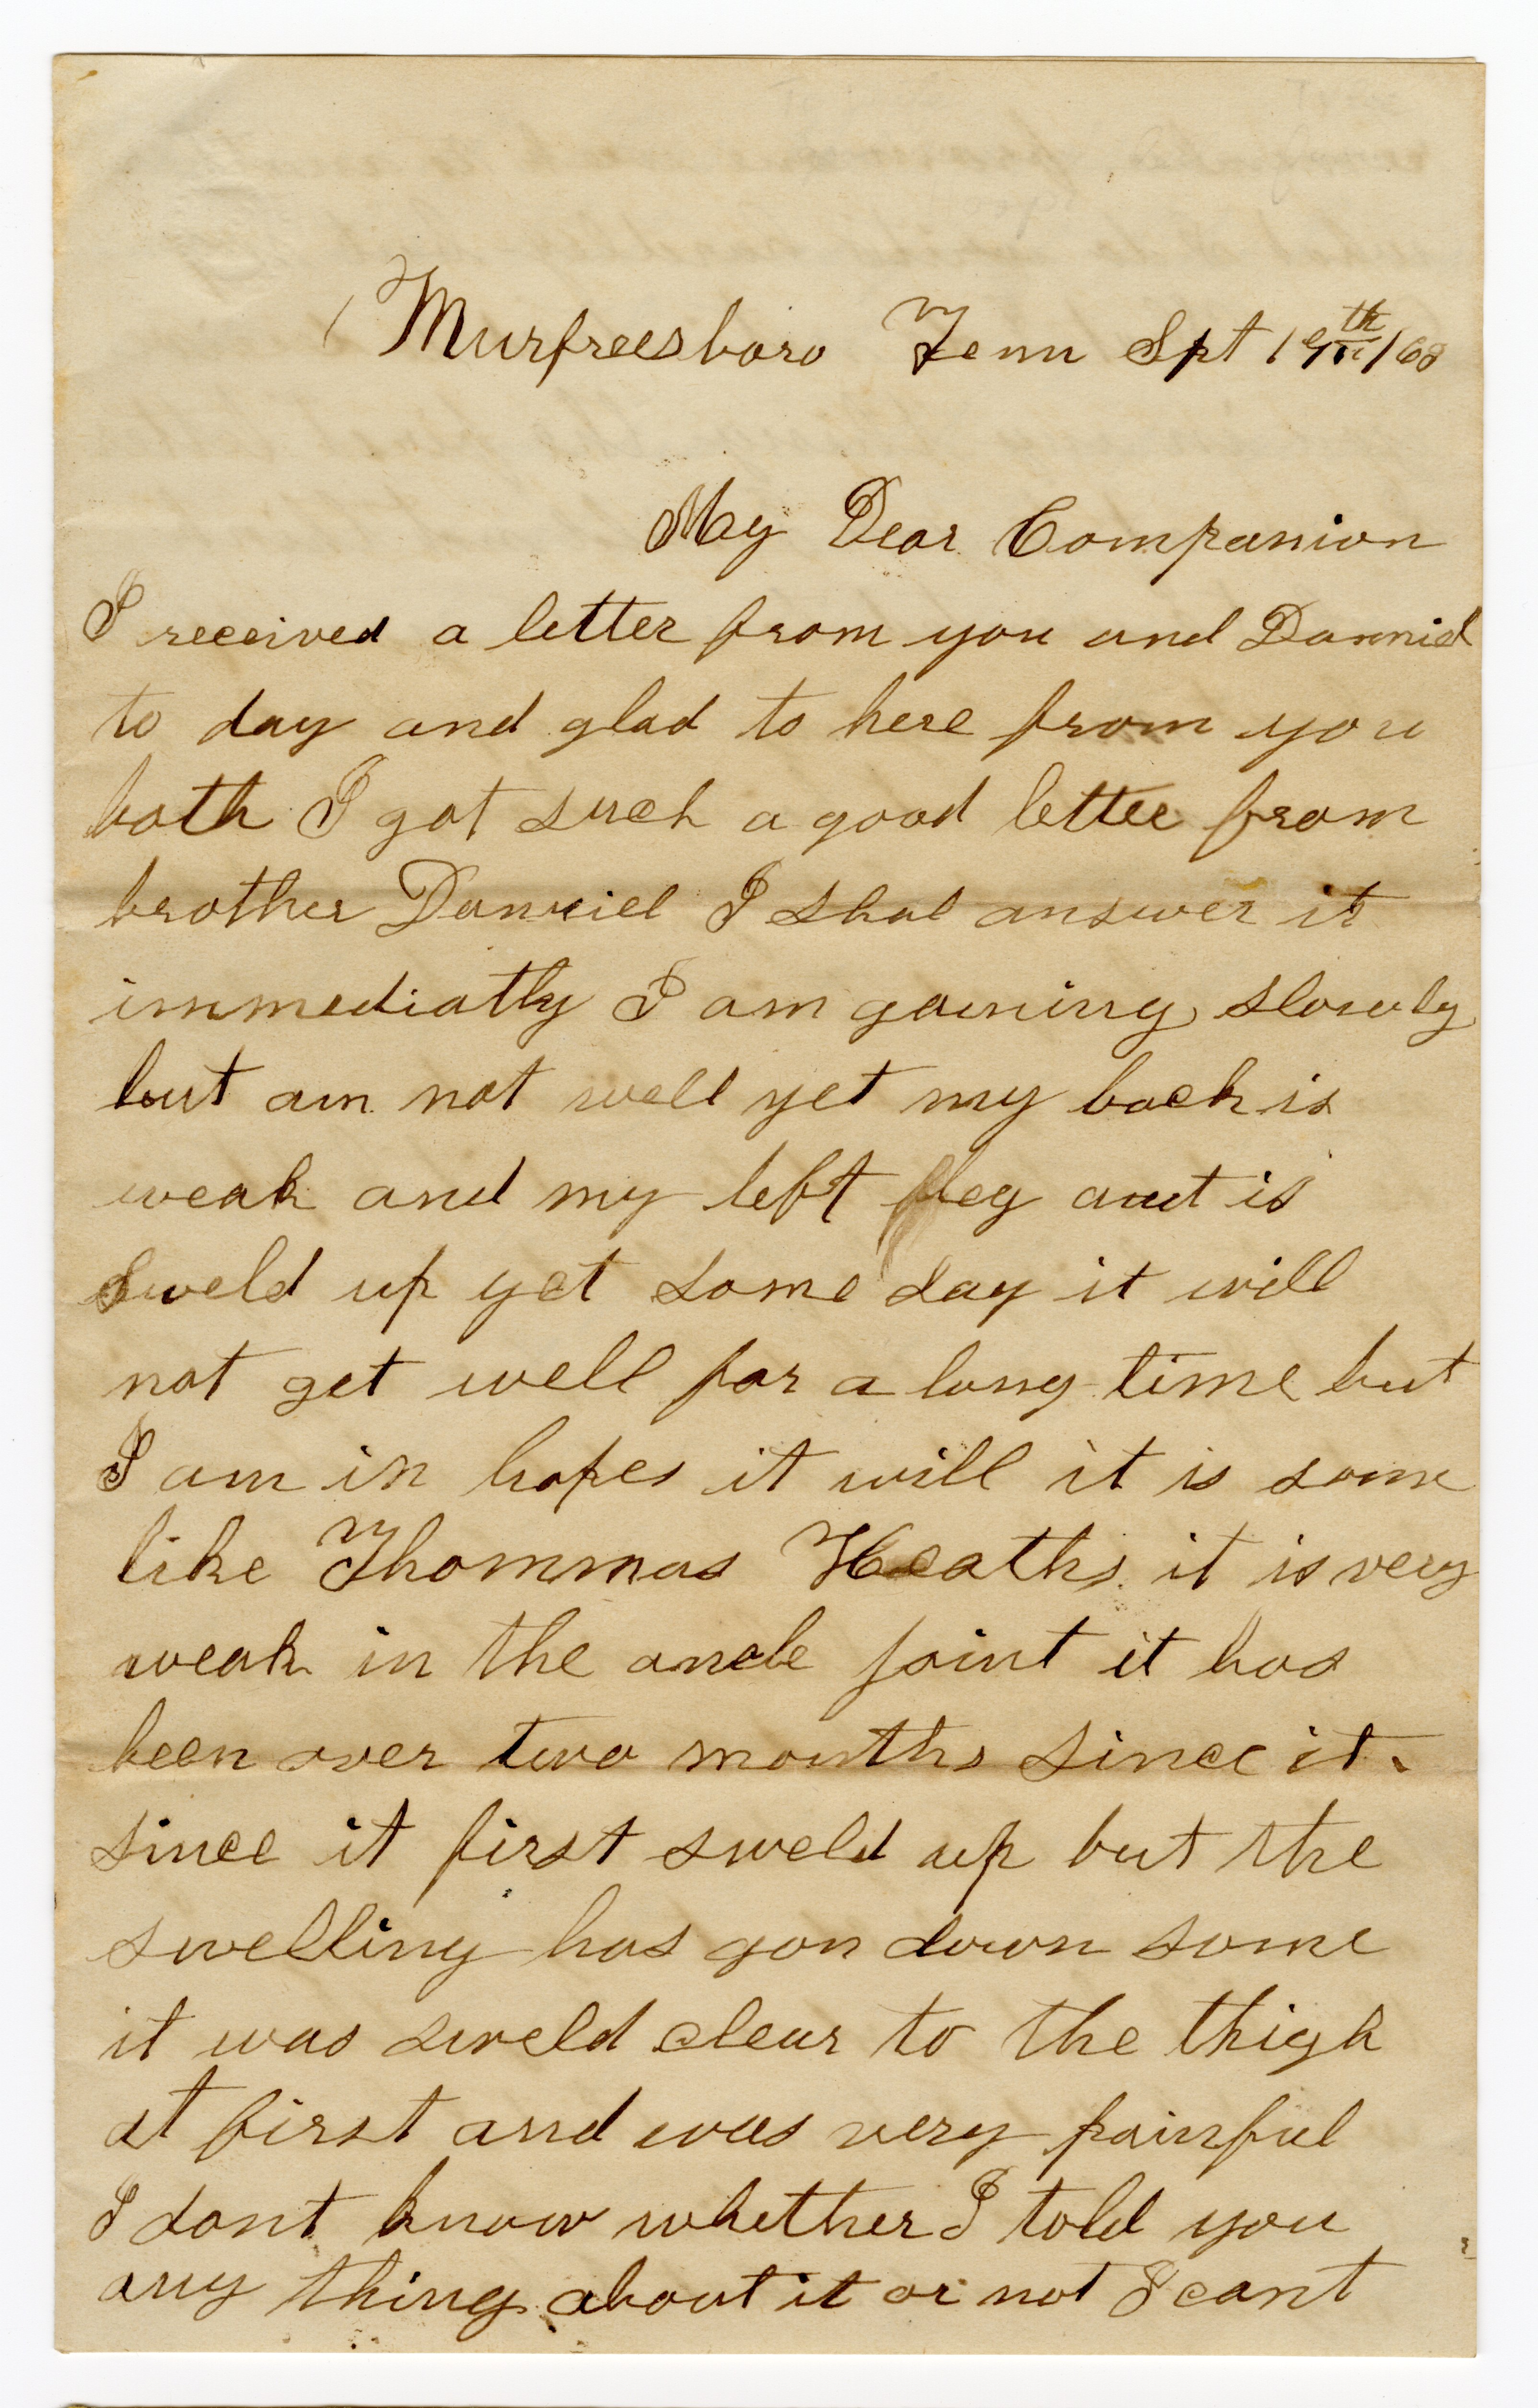 Murfreesboro Tenn Spt 19th/63
My Dear Companion
I received a letter from you and Danniel
to day and glad to here from you
both I got such a good letter from
brother Danniel I shal answer it
immediatly I am gaining slowly
but am not well yet my back is
weak and my left leg and is
sweld up yet some day it will
not get well for a long time but
I am in hopes it will it is some
like Thommas Heaths it is very
weak in the ancle joint it has
been over two months since it
since it first sweld up but the
swelling has gon down some
it was sweld clear to the thigh
at first and was very painful
I dont know whether I told you
any thing about it or not I cant